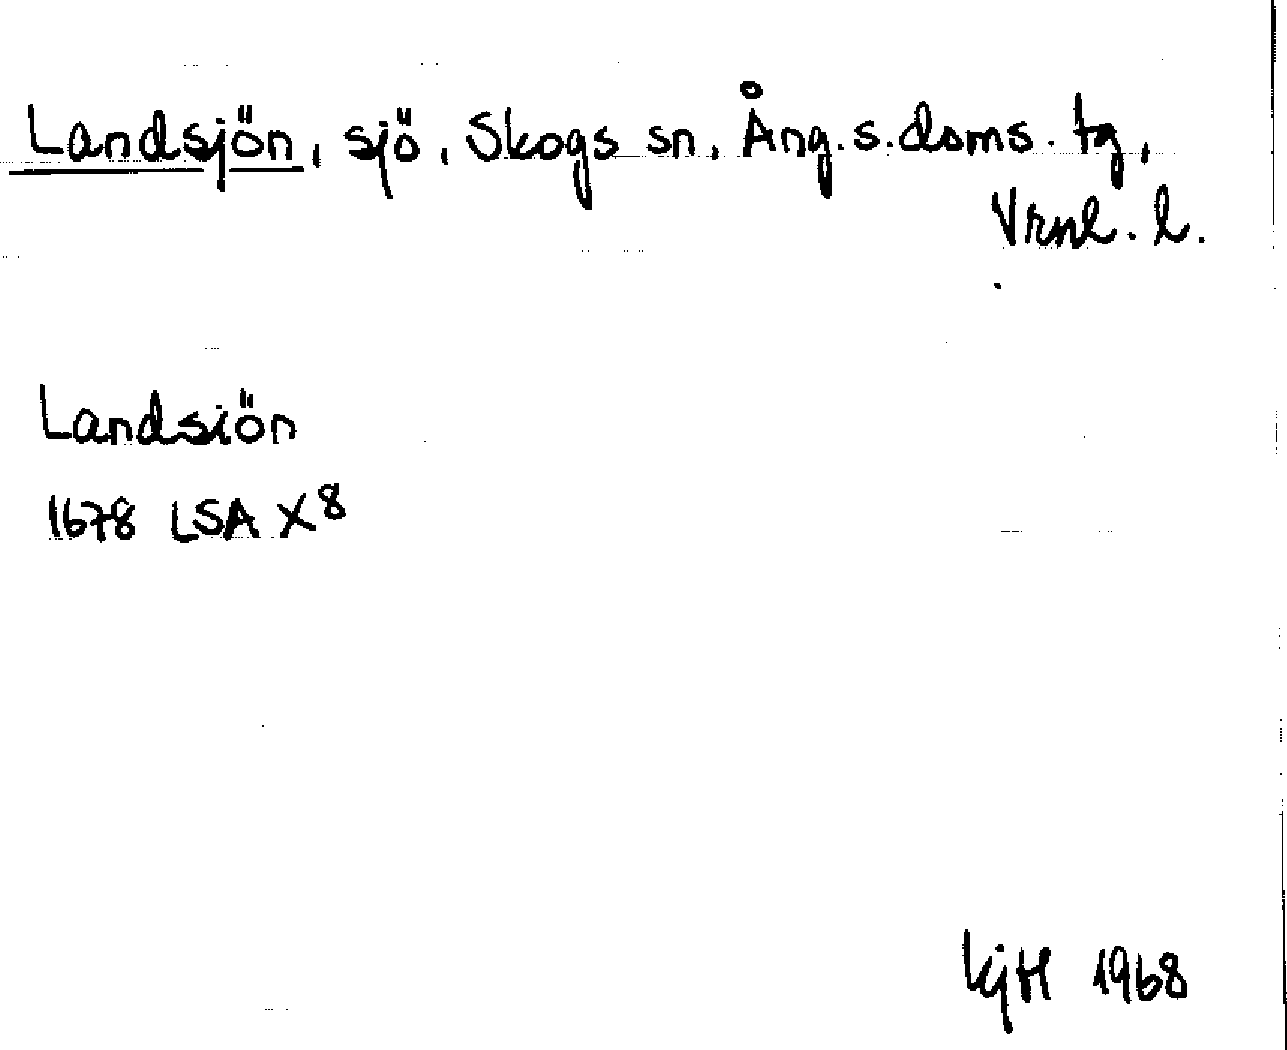 Landsjön, sjö, Skogs sn, Ång. s. doms. tg,
Vrnl. l.
Landsiön
1678 LSA X8
KjH 1968